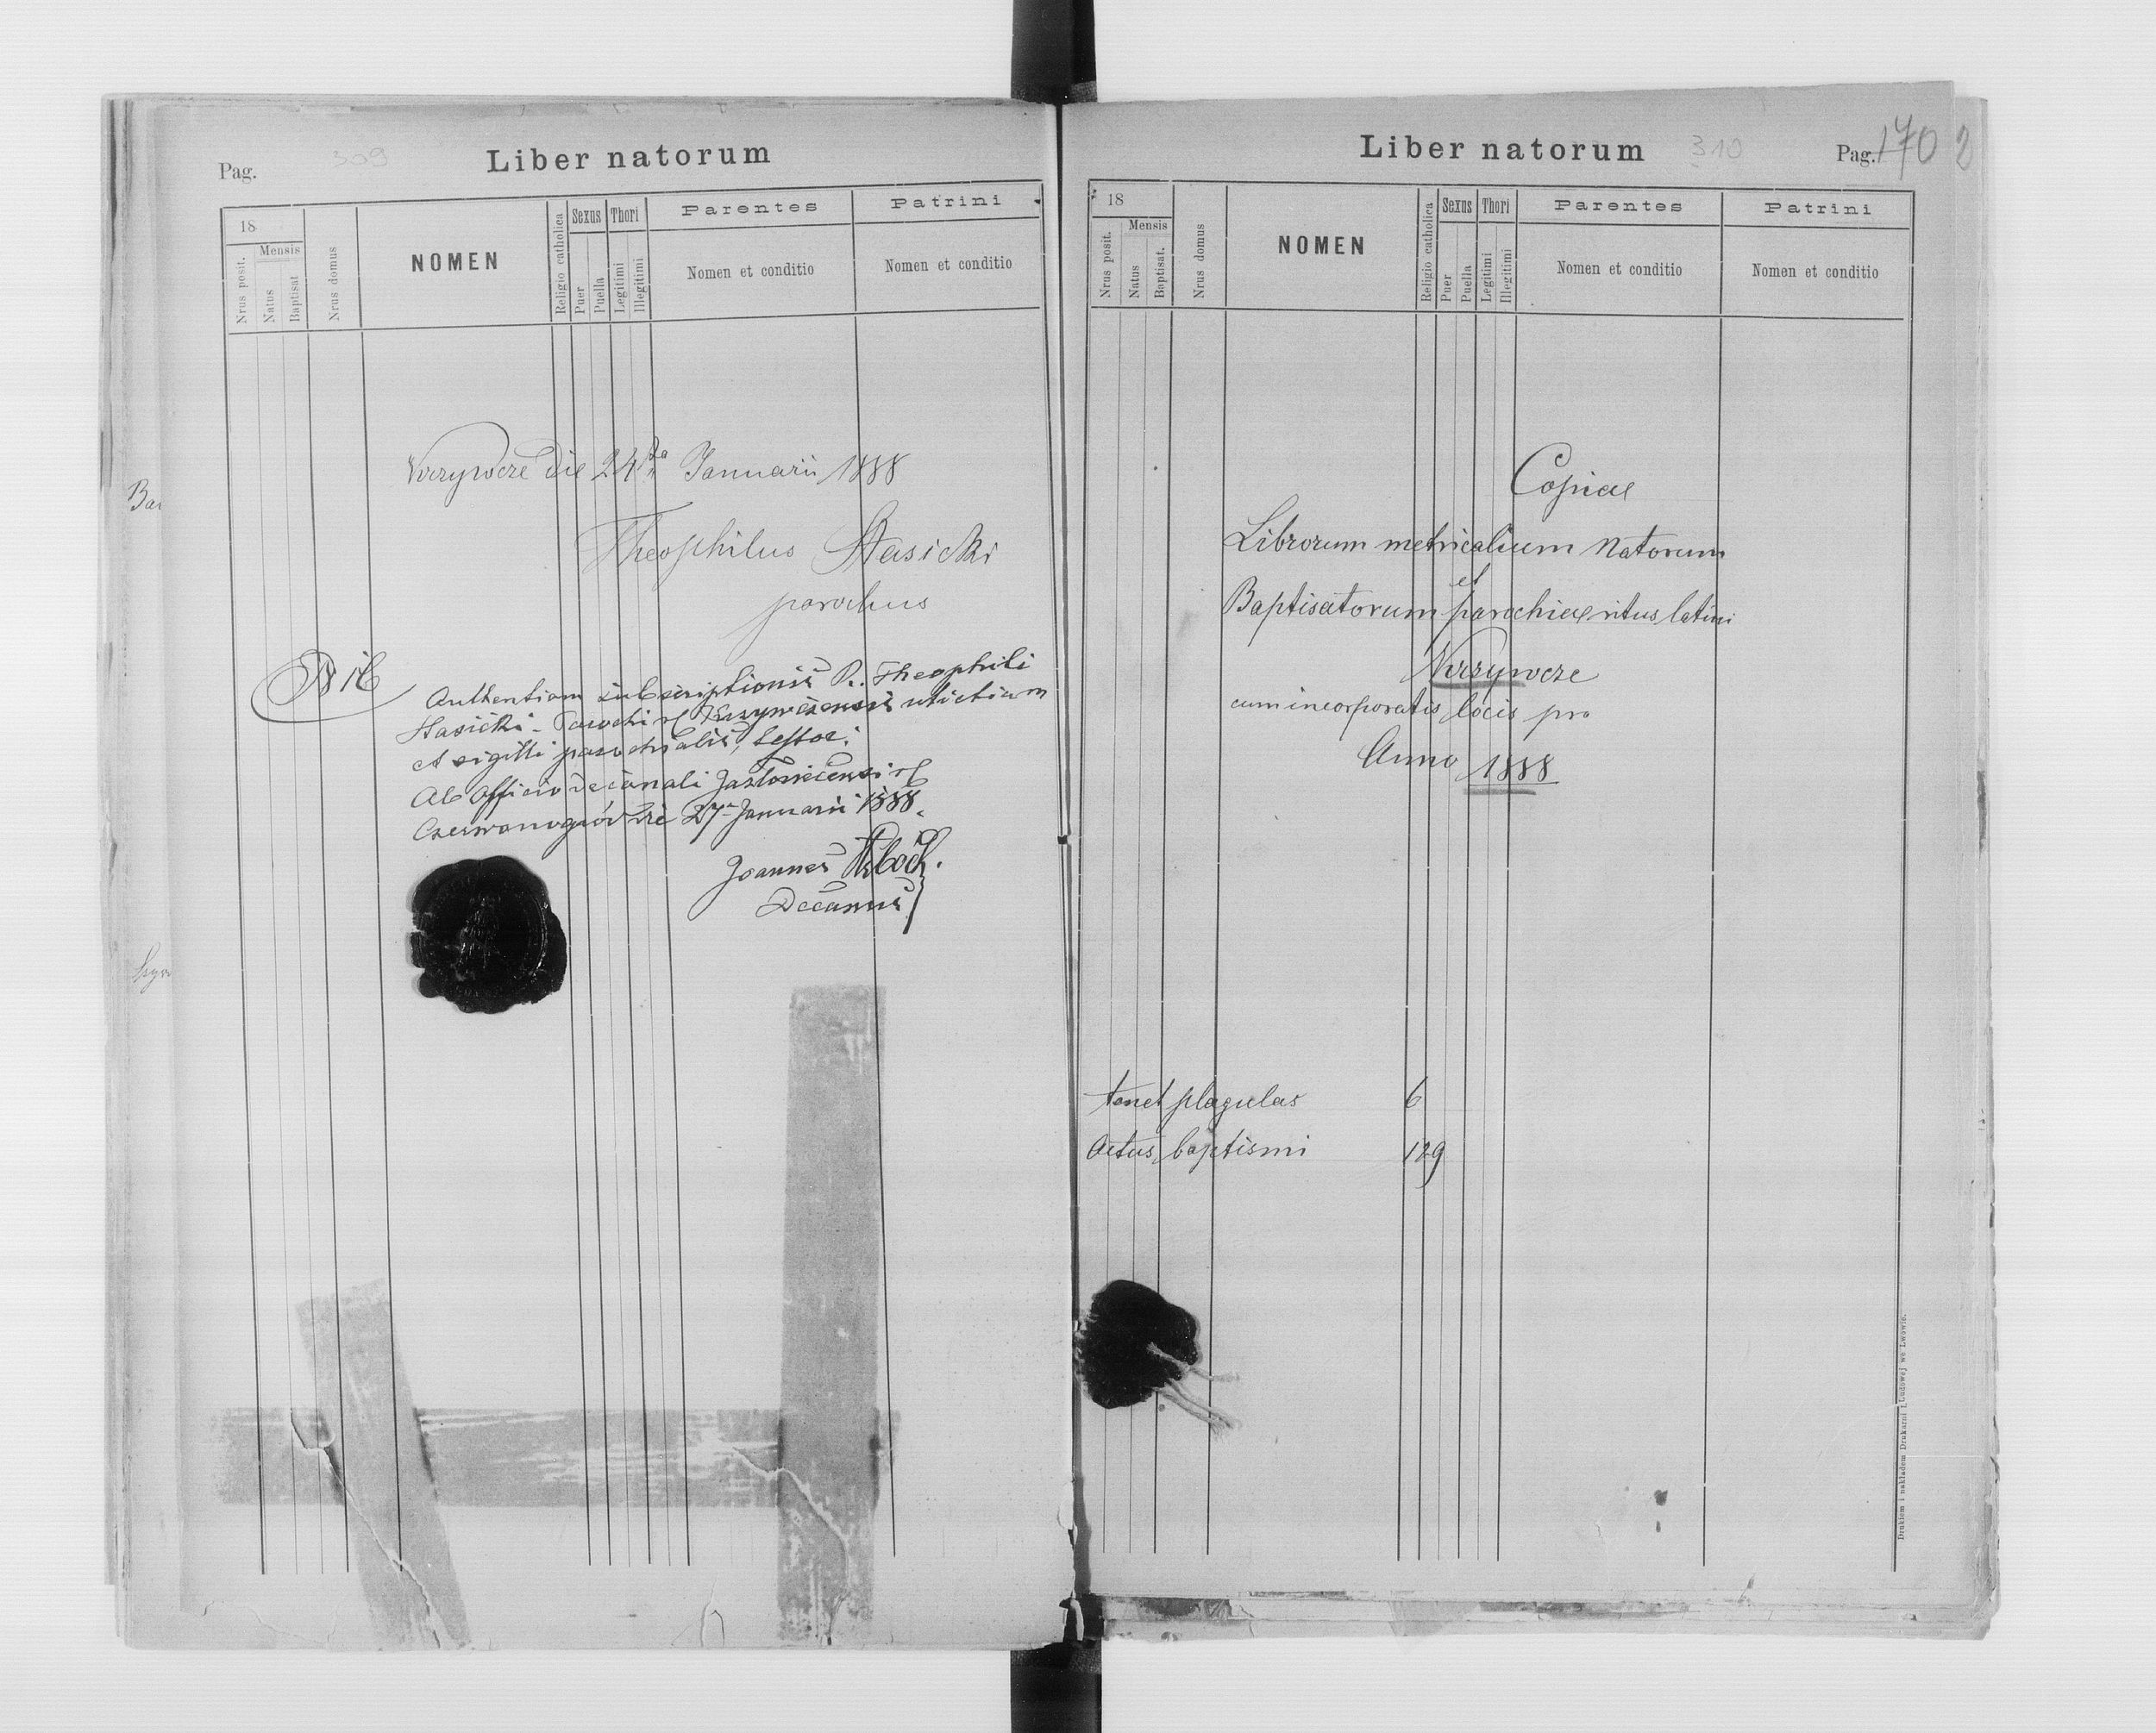 Pag.
309
Liber natorum
18
Mensis
Nrus posit.
Natus
Baptisat
Nrus domus
NOMEN
Religio catholica
Sexus
Puer
Puella
Thori
Legitimi
Illegitimi
Parentes
Nomen et conditio
Patrini
Nomen et conditio
die 24 Januarii 1888
Theophilus Stasicki
parochus
Authentiam subscriptionis R. Theophili
Stasicki Parochi
et sigilli parochialis, testor.
Ab Officio decanali
die 27 Januarii 1888.
Joannes
Decanus
Liber natorum
310
Pag. 170
2
18
Mensis
Nrus posit.
Natus
Baptisat.
Nrus domus
NOMEN
Religio catholica
Sexus
Puer
Puella
Thori
Legitimi
Illegitimi
Parentes
Nomen et conditio
Patrini
Nomen et conditio
Copiae
Librorum metricalium Natorum
et
Baptisatorum parochiae ritus latini
cum incorporatis locis pro
Anno 1888
tenet plagulas 6
Actus baptismi 129
Drukiem i nakładem Drukarni Ludowej we Lwowie.